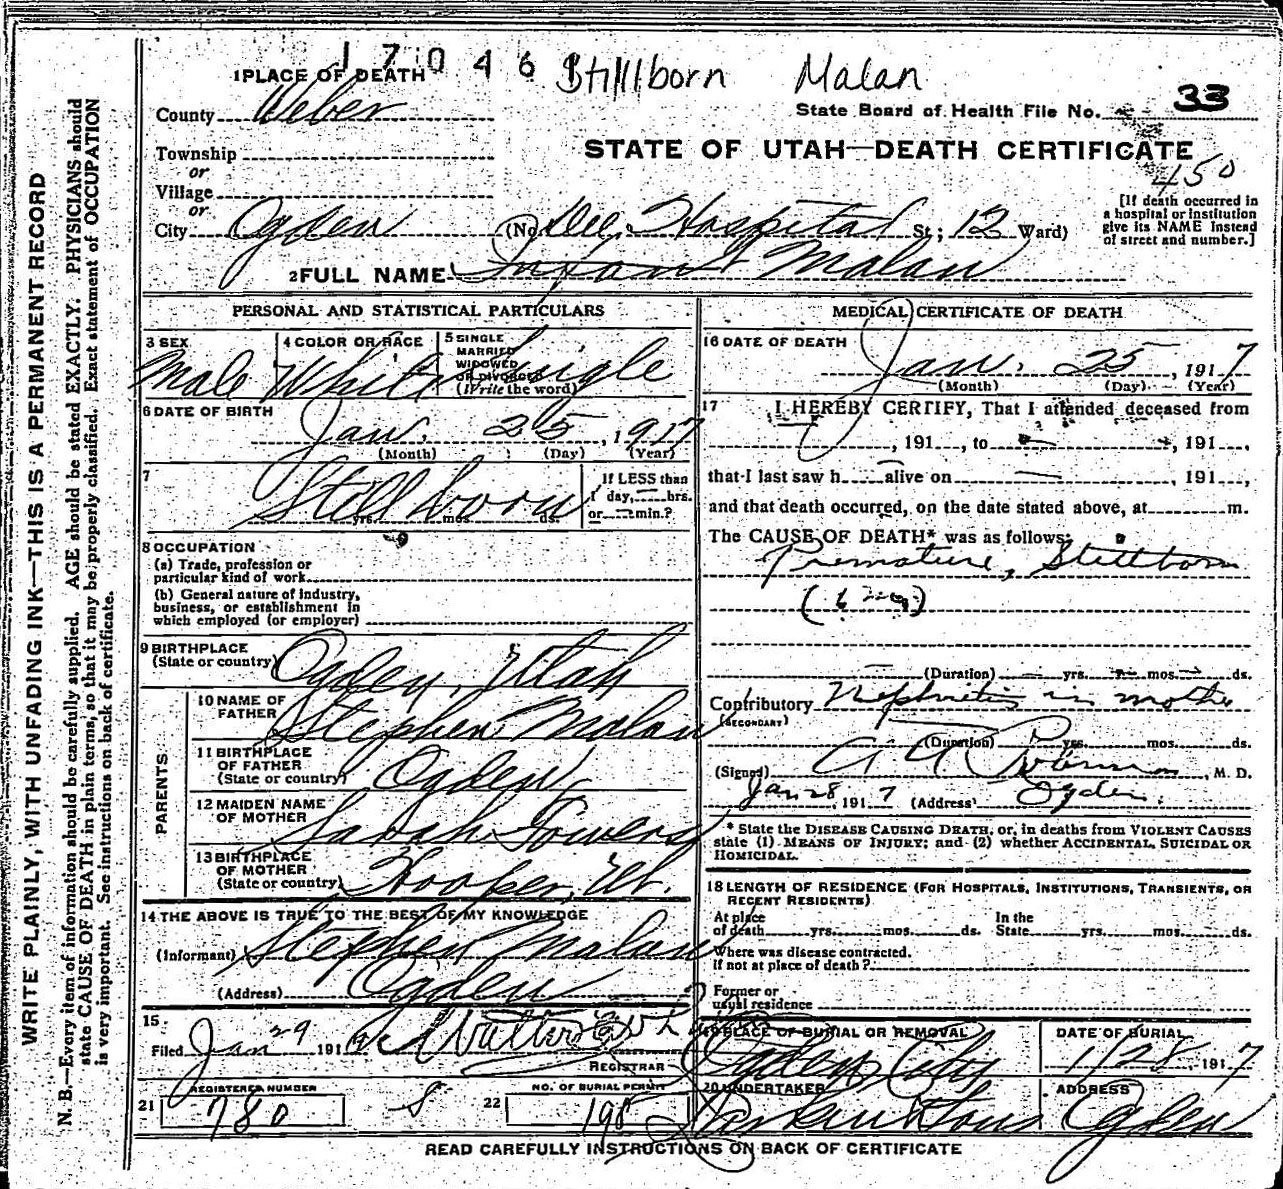 17046 Stillborn Malan
1 PLACE OF DEATH
State Board of Health File No. 33
County Weber
STATE OF UTAH—DEATH CERTIFICATE
Township
or
450
Village
or
[If death occurred in
a hospital or institution
give its NAME instead
of street and number.]
City Ogden (No. Dee Hospital St; 12 Ward)
2 FULL NAME Infant Malan
PERSONAL AND STATISTICAL PARTICULARS
3 SEX
Male
4 COLOR OR RACE
White
5 SINGLE
MARRIED
WIDOWED
OR DIVORCED
(Write the word)
Single
6 DATE OF BIRTH
Jan. 25, 1917
(Month) (Day) (Year)
7
Stillborn
yrs. mos. ds.
If LESS than
1 day, hrs.
or min.?
8 OCCUPATION
(a) Trade, profession or
particular kind of work
(b) General nature of industry,
business, or establishment in
which employed (or employer)
9 BIRTHPLACE
(State or country) Ogden, Utah
PARENTS
10 NAME OF
FATHER Stephen Malan
11 BIRTHPLACE
OF FATHER
(State or country) Ogden
12 MAIDEN NAME
OF MOTHER Sarah Towers
13 BIRTHPLACE
OF MOTHER
(State or country) Hooper, Ut.
14 THE ABOVE IS TRUE TO THE BEST OF MY KNOWLEDGE
(Informant) Stephen Malan
(Address) Ogden
15
Filed Jan 29 191
REGISTRAR
REGISTERED NUMBER
21 780 S
NO. OF BURIAL PERMIT
22 198
MEDICAL CERTIFICATE OF DEATH
16 DATE OF DEATH
Jan. 25, 1917
(Month) (Day) (Year)
17 I HEREBY CERTIFY, That I attended deceased from
, 191 , to , 191 ,
that I last saw h alive on , 191 ,
and that death occurred, on the date stated above, at m.
The CAUSE OF DEATH* was as follows:
Premature, Stillborn
(Duration) yrs. mos. ds.
Contributory Nephritis in mother
(SECONDARY)
(Duration) yrs. mos. ds.
(Signed) Robinson, M. D.
Jan 28, 1917 (Address) Ogden.
* State the DISEASE CAUSING DEATH, or, in deaths from VIOLENT CAUSES
state (1) MEANS OF INJURY; and (2) whether ACCIDENTAL, SUICIDAL OR
HOMICIDAL.
18 LENGTH OF RESIDENCE (FOR HOSPITALS, INSTITUTIONS, TRANSIENTS, OR
RECENT RESIDENTS)
At place
of death yrs. mos. ds.
In the
State yrs. mos. ds.
Where was disease contracted,
if not at place of death?
Former or
usual residence
19 PLACE OF BURIAL OR REMOVAL
Ogden City
DATE OF BURIAL
1/28, 1917
20 UNDERTAKER
ADDRESS
Ogden
READ CAREFULLY INSTRUCTIONS ON BACK OF CERTIFICATE
WRITE PLAINLY, WITH UNFADING INK—THIS IS A PERMANENT RECORD
N. B.—Every item of information should be carefully supplied. AGE should be stated EXACTLY. PHYSICIANS should
state CAUSE OF DEATH in plain terms, so that it may be properly classified. Exact statement of OCCUPATION
is very important. See instructions on back of certificate.